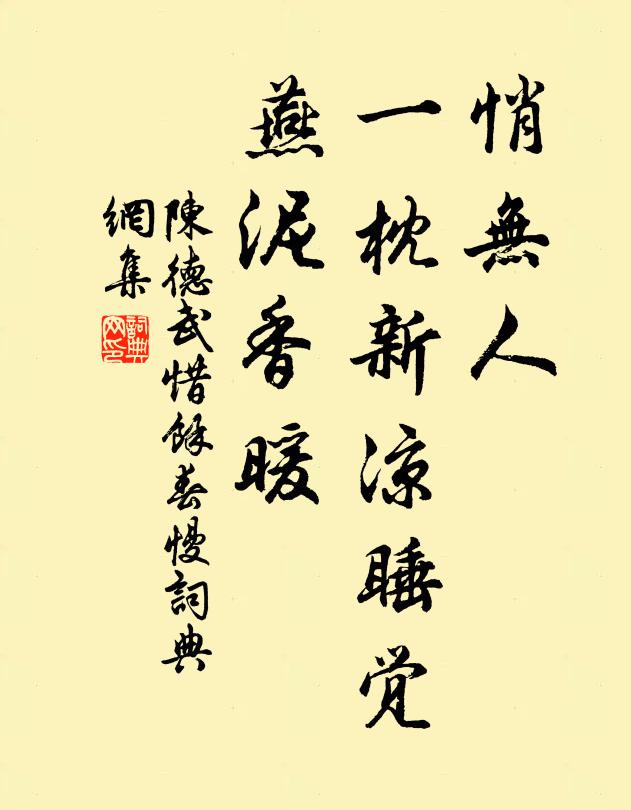 悄無人
一枕新凉睡觉
燕泥香暖
陳德武惜餘春慢詞典
網集
詞典
网印